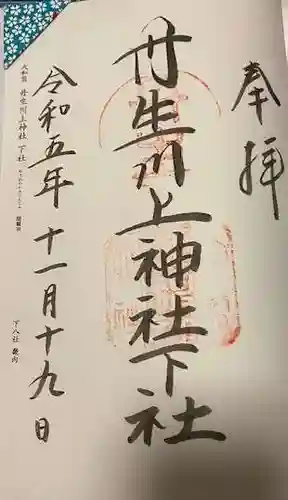 奉拝
丹生川上神社下社
令和五年十一月十九日
大和国 丹生川上神社 下社
下八社 畿内